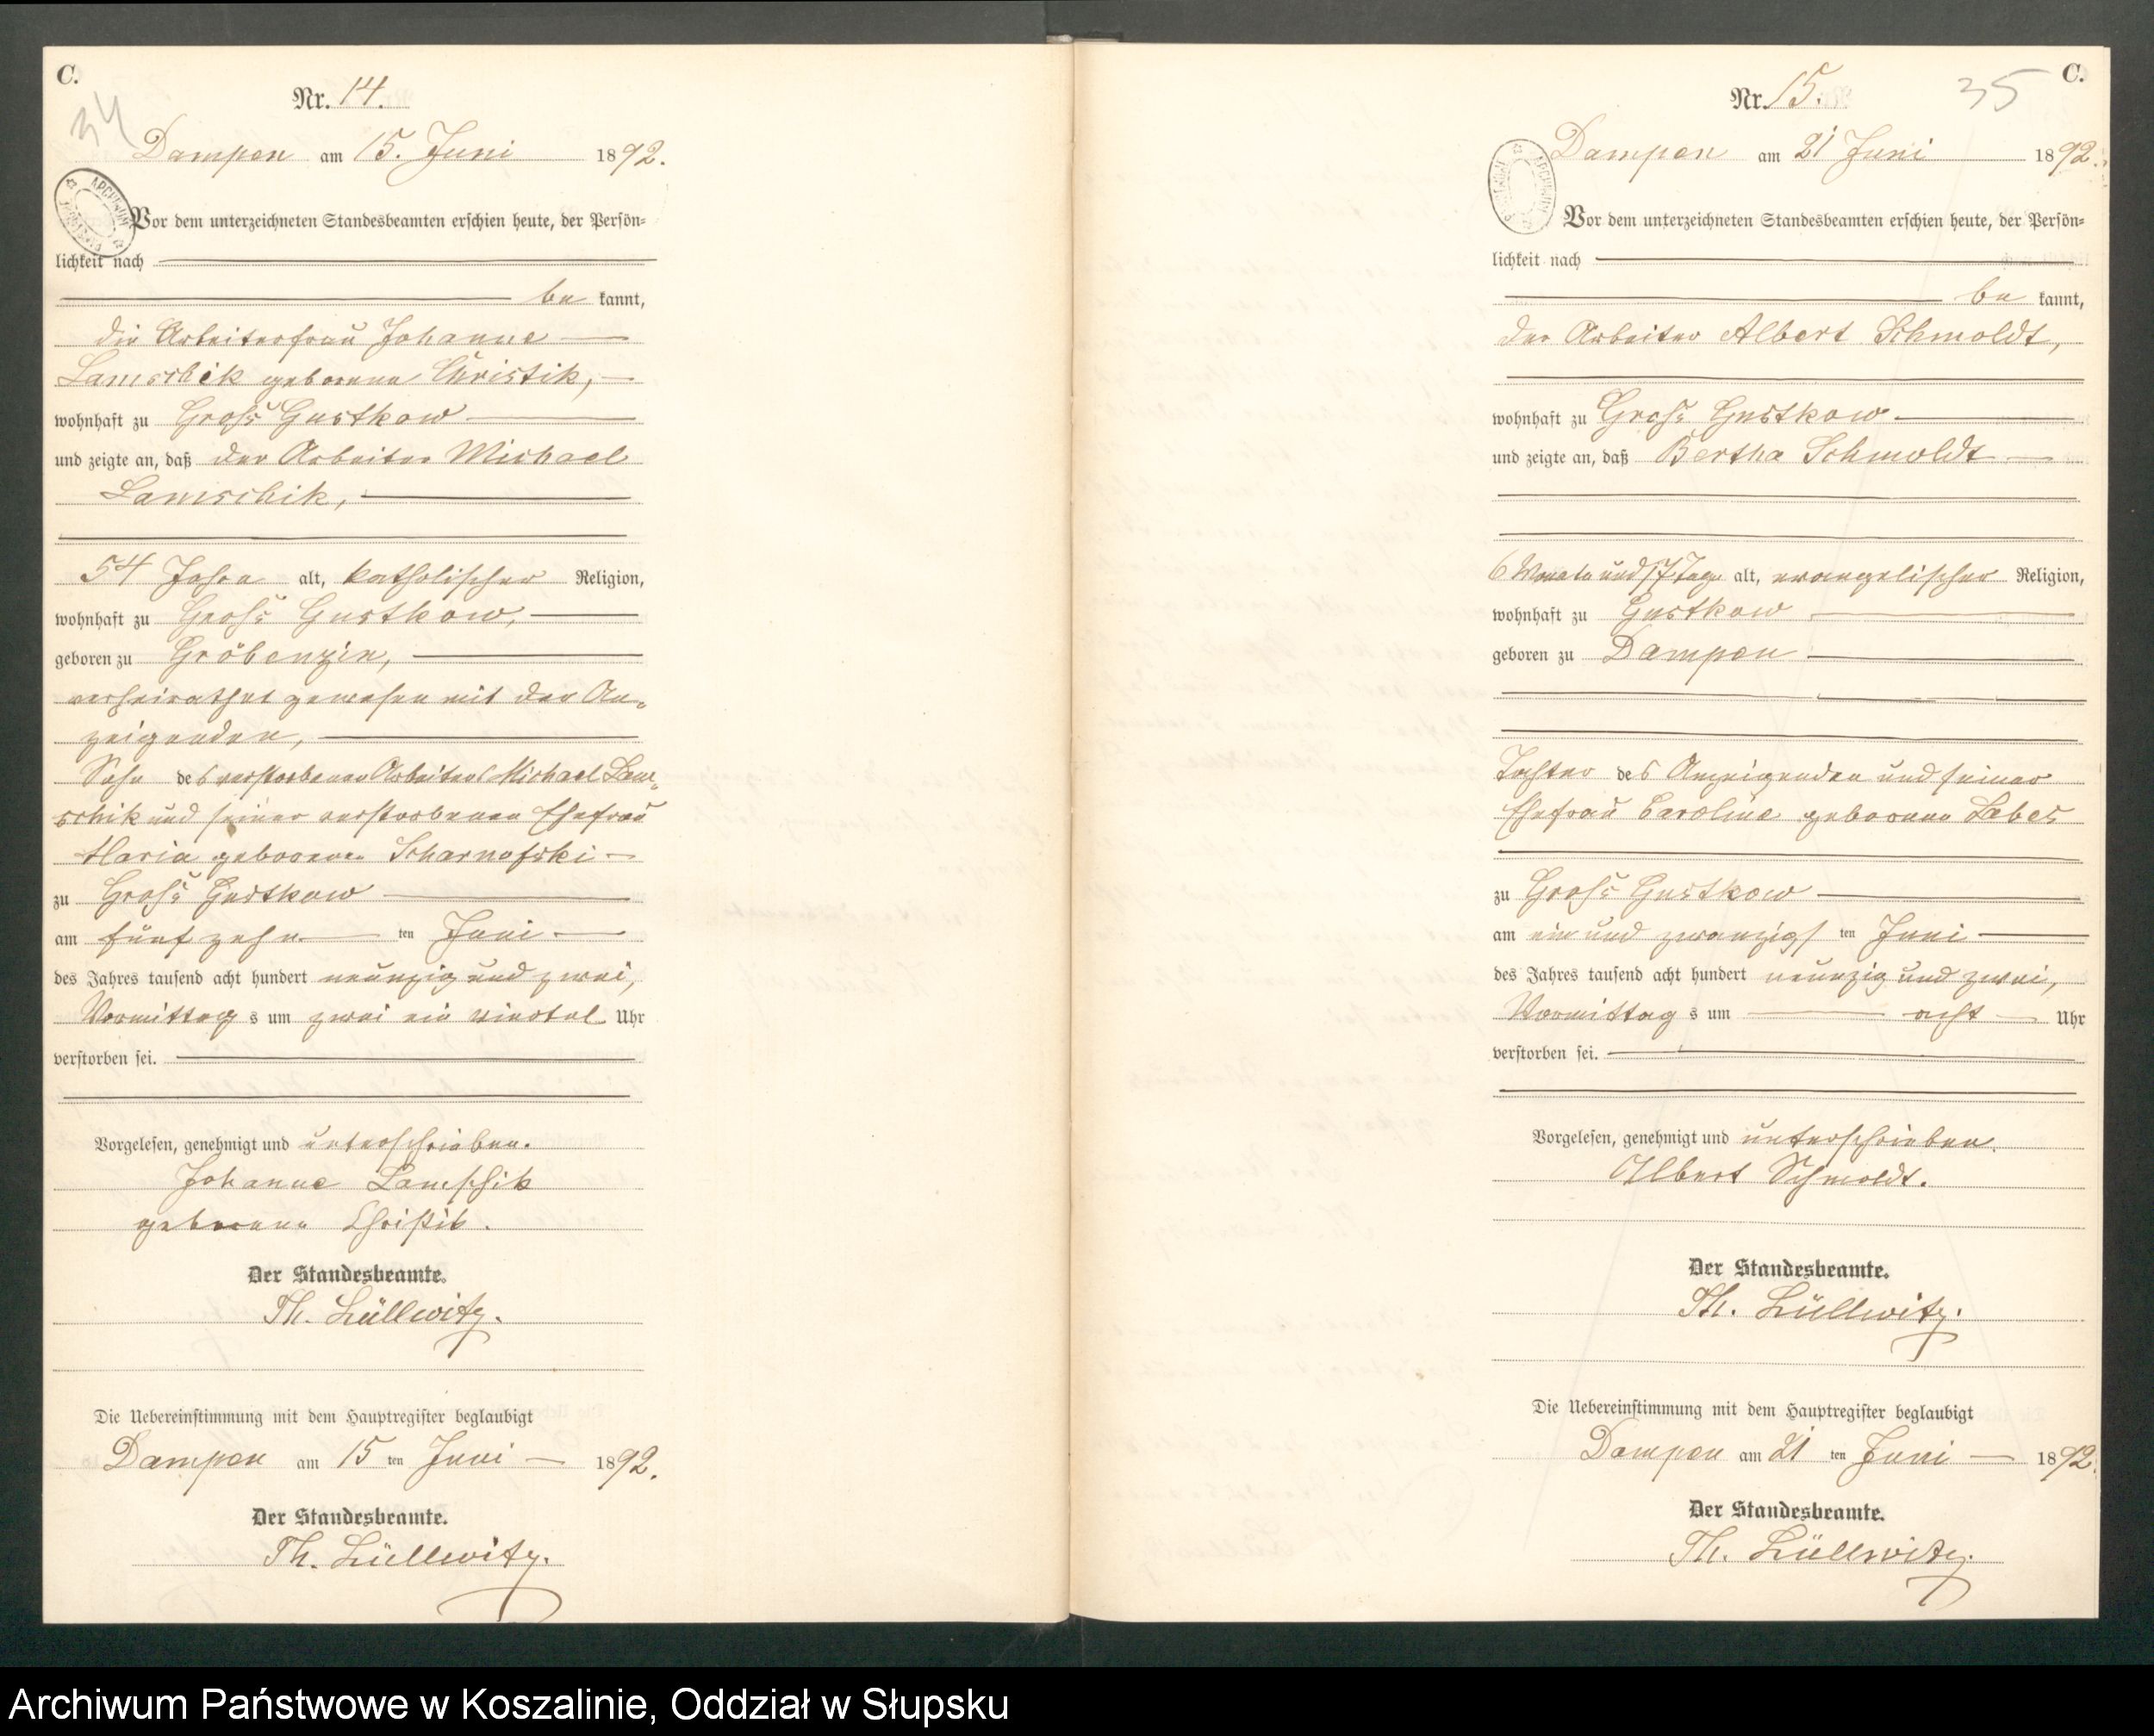 C.
34
Nr. 14.
Dampen am 15. Juni 1892.
ARCHIWUM
Vor dem unterzeichneten Standesbeamten erschien heute, der Persön-
lichkeit nach
be kannt,
die Arbeiterfrau Johanne
Lamschik geborene Christik,
wohnhaft zu Groß Gustkow
und zeigte an, daß der Arbeiter Michael
Lamschik,
54 Jahre alt, katholischer Religion,
wohnhaft zu Groß Gustkow,
geboren zu Gröbenzin,
verheirathet gewesen mit der An-
zeigenden,
Sohn des verstorbenen Arbeiters Michael Lam-
schik und seiner verstorbenen Ehefrau
Maria geborenen Scharnofski
zu Groß Gustkow
am fünfzehn ten Juni
des Jahres tausend acht hundert neunzig und zwei,
Vormittag s um zwei ein viertel Uhr
verstorben sei.
Vorgelesen, genehmigt und unterschrieben.
Johanne Lamschik
geborene Christik.
Der Standesbeamte.
Th. Lüllwitz.
Die Uebereinstimmung mit dem Hauptregister beglaubigt
Dampen am 15 ten Juni 1892.
Der Standesbeamte.
Th. Lüllwitz.
C.
35
Nr. 15.
Dampen am 21 Juni 1892.
ARCHIWUM
Vor dem unterzeichneten Standesbeamten erschien heute, der Persön-
lichkeit nach
be kannt,
der Arbeiter Albert Schmoldt,
wohnhaft zu Groß Gustkow
und zeigte an, daß Bertha Schmoldt
6 Monate und 17 Tage alt, evangelischer Religion,
wohnhaft zu Gustkow
geboren zu Dampen
Tochter des Anzeigenden und seiner
Ehefrau Caroline geborene Labes
zu Groß Gustkow
am ein und zwanzigs ten Juni
des Jahres tausend acht hundert neunzig und zwei,
Vormittag s um acht Uhr
verstorben sei.
Vorgelesen, genehmigt und unterschrieben.
Albert Schmoldt.
Der Standesbeamte.
Th. Lüllwitz.
Die Uebereinstimmung mit dem Hauptregister beglaubigt
Dampen am 21 ten Juni 1892
Der Standesbeamte.
Th. Lüllwitz.
Archiwum Państwowe w Koszalinie, Oddział w Słupsku